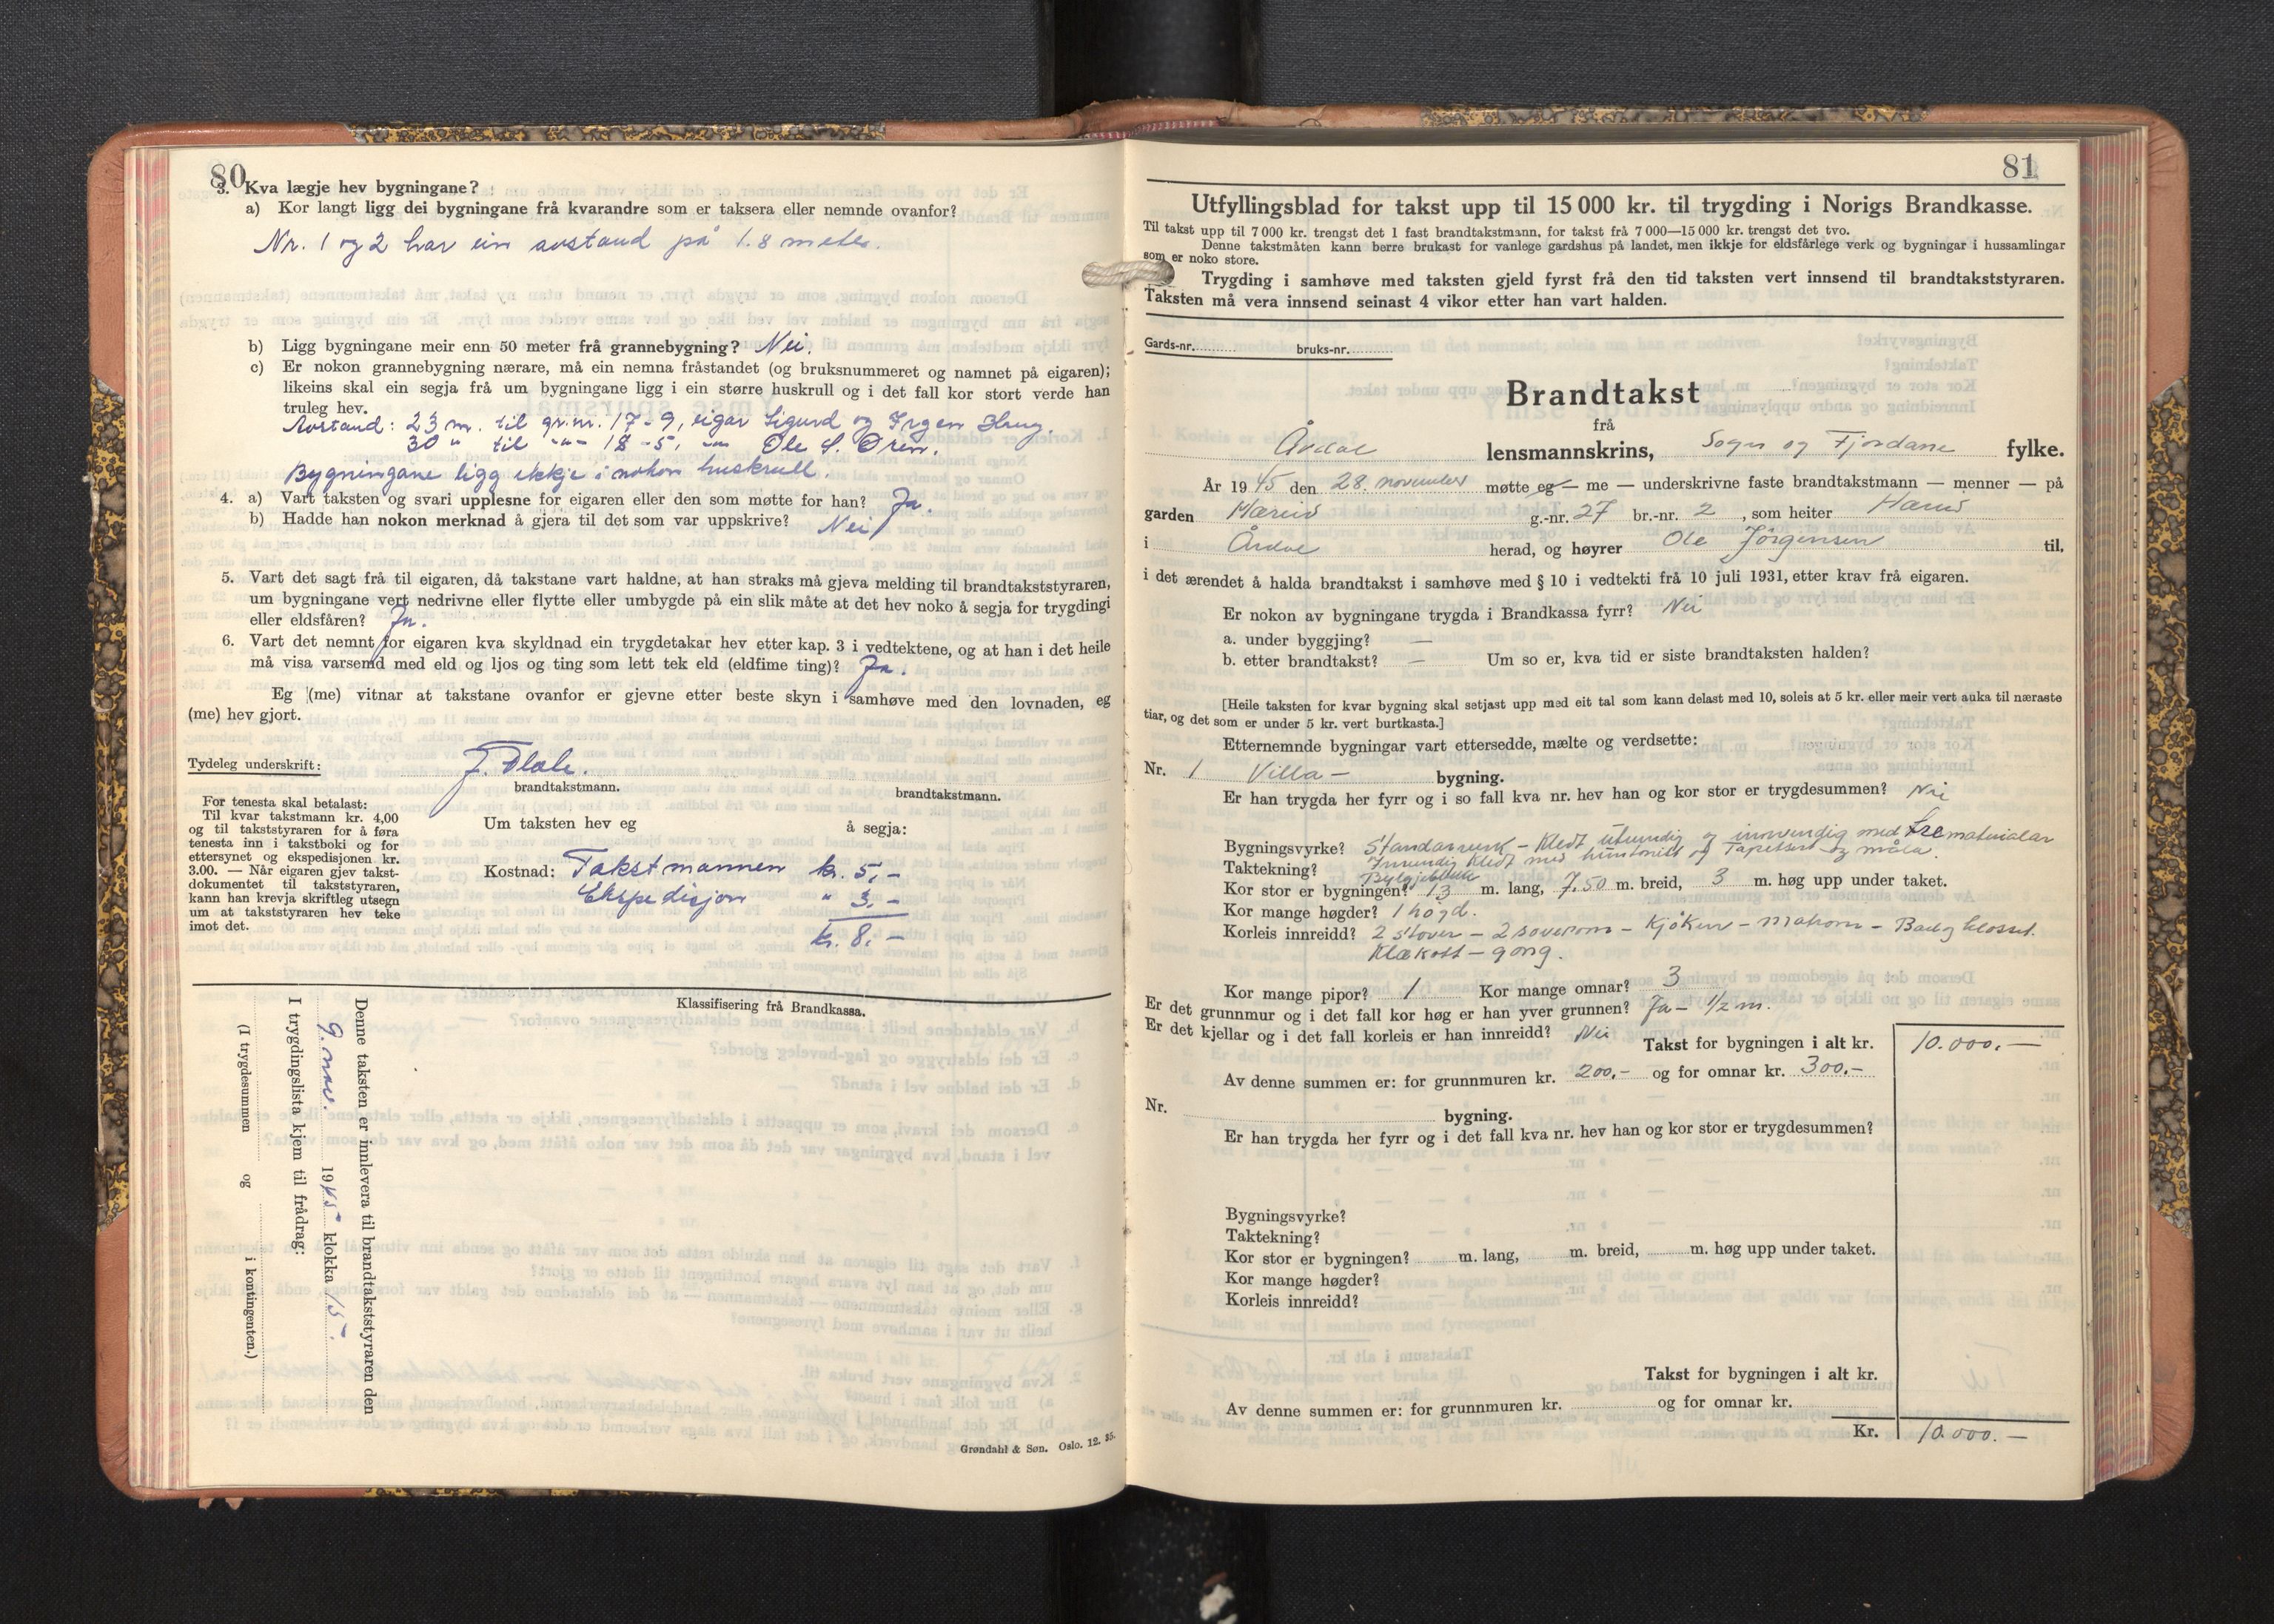 80
3. Kva lægje hev bygningane?
a) Kor langt ligg dei bygningane frå kvarandre som er taksera eller nemnde ovanfor?
Nr. 1 og 2 har ein avstand på 1.8 meter.
b) Ligg bygningane meir enn 50 meter frå grannebygning? Nei.
c) Er nokon grannebygning nærare, må ein nemna fråstandet (og bruksnummeret og namnet på eigaren);
likeins skal ein segja frå um bygningane ligg i ein større huskrull og i det fall kor stort verde han
truleg hev.
Avstand: 23 m. til gr.nr. 17-9, eigar Sigurd og
30 " til -"- 18-5, -"- Ole S. Øren.
Bygningane ligg ikkje i nokon huskrull.
4. a) Vart taksten og svari upplesne for eigaren eller den som møtte for han? Ja.
b) Hadde han nokon merknad å gjera til det som var uppskrive? Nei
5. Vart det sagt frå til eigaren, då takstane vart haldne, at han straks må gjeva melding til brandtakststyraren,
um bygningane vert nedrivne eller flytte eller umbygde på ein slik måte at det hev noko å segja for trygdingi
eller eldsfåren? Ja.
6. Vart det nemnt for eigaren kva skyldnad ein trygdetakar hev etter kap. 3 i vedtektene, og at han i det heile
må visa varsemd med eld og ljos og ting som lett tek eld (eldfime ting)? Ja.
Eg (me) vitnar at takstane ovanfor er gjevne etter beste skyn i samhøve med den lovnaden, eg
(me) hev gjort.
Tydeleg underskrift:
brandtakstmann.
brandtakstmann.
For tenesta skal betalast:
Til kvar takstmann kr. 4,00
og til takststyraren for å føra
tenesta inn i takstboki og for
ettersynet og ekspedisjonen kr.
3.00. — Når eigaren gjev takst-
dokumentet til takststyraren,
kann han krevja skriftleg utsegn
um at takststyraren hev teke
imot det.
Um taksten hev eg å segja:
Kostnad: Takstmannen kr. 5,-
Ekspedisjon " 3.-
kr. 8.-
Klassifisering frå Brandkassa.
Denne taksten er innlevera til brandtakststyraren den
9. nov. 1945 klokka 15.
I trygdingslista kjem til frådrag:
(I trygdesummen og i kontingenten.)
Grøndahl & Søn. Oslo. 12. 35.
81
Utfyllingsblad for takst upp til 15 000 kr. til trygding i Norigs Brandkasse.
Til takst upp til 7 000 kr. trengst det 1 fast brandtakstmann, for takst frå 7 000—15 000 kr. trengst det tvo.
Denne takstmåten kann berre brukast for vanlege gardshus på landet, men ikkje for eldsfårlege verk og bygningar i hussamlingar
som er noko store.
Trygding i samhøve med taksten gjeld fyrst frå den tid taksten vert innsend til brandtakststyraren.
Taksten må vera innsend seinast 4 vikor etter han vart halden.
Gards-nr. bruks-nr.
Brandtakst
frå
Årdal lensmannskrins, Sogn og Fjordane fylke.
År 1945 den 28. november møtte eg — me — underskrivne faste brandtakstmann — menner — på
garden Hæreid g.-nr. 27 br.-nr. 2, som heiter Hæreid
i Årdal herad, og høyrer Ole Jörgensen til.
i det ærendet å halda brandtakst i samhøve med § 10 i vedtekti frå 10 juli 1931, etter krav frå eigaren.
Er nokon av bygningane trygda i Brandkassa fyrr? Nei
a. under byggjing? —
b. etter brandtakst? — Um so er, kva tid er siste brandtaksten halden?
[Heile taksten for kvar bygning skal setjast upp med eit tal som kann delast med 10, soleis at 5 kr. eller meir vert auka til næraste
tiar, og det som er under 5 kr. vert burtkasta.]
Etternemnde bygningar vart ettersedde, mælte og verdsette:
Nr. 1 Villa- bygning.
Er han trygda her fyrr og i so fall kva nr. hev han og kor stor er trygdesummen? Nei
Bygningsvyrke? Standarverk - Kledt utvendig og innvendig med trematerialar
Innvendig kledt med huntonitt og Tapetsert og måla.
Taktekning? Bylgjeblekk
Kor stor er bygningen? 13 m. lang, 7,50 m. breid, 3 m. høg upp under taket.
Kor mange høgder? 1 høgd.
Korleis innreidd? 2 stover - 2 soverom - Kjöken - matrom - Bad og klosset.
Klækott - gong.
Kor mange pipor? 1 Kor mange omnar? 3
Er det grunnmur og i det fall kor høg er han yver grunnen? Ja - 1/2 m.
Er det kjellar og i det fall korleis er han innreidd? Nei
Takst for bygningen i alt kr. 10.000.-
Av denne summen er: for grunnmuren kr. 200.- og for omnar kr. 300.-
Nr. bygning.
Er han trygda her fyrr og i det fall kva nr. hev han og kor stor er trygdesummen?
Bygningsvyrke?
Taktekning?
Kor stor er bygningen? m. lang, m. breid, m. høg upp under taket.
Kor mange høgder?
Korleis innreidd?
Takst for bygningen i alt kr.
Av denne summen er: for grunnmuren kr. og for omnar kr.
Kr. 10.000.-